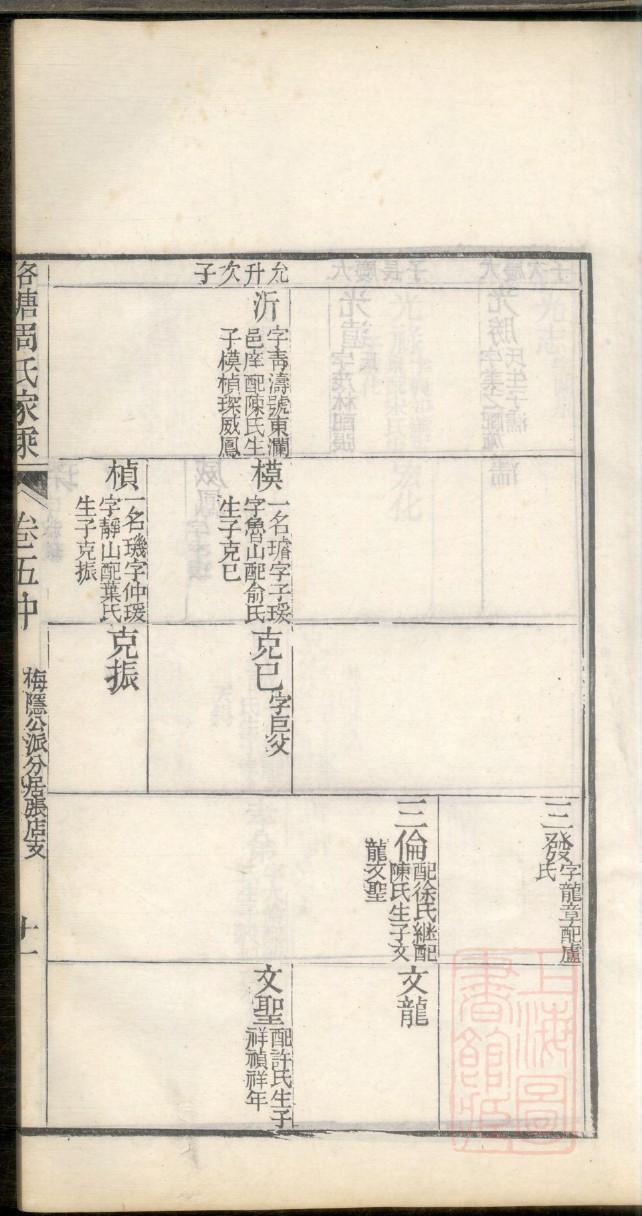 允升次子
沂
字靑濤號東瀾
邑庠配陳氏生
子模楨琛威鳳
模
一名璿字子瑗
字魯山配俞氏
生子克巳
楨
一名璣字仲瑗
字靜山配葉氏
生子克振
克巳
字巨父
克振
三發
字龍章配盧
氏
三倫
配徐氏継配
陳氏生子文
龍文聖
文龍
文聖
配許氏生子
祥禎祥年
洛塘周氏家乘
卷五中
梅隱公派分居張店支
十一
上海圖
書館藏